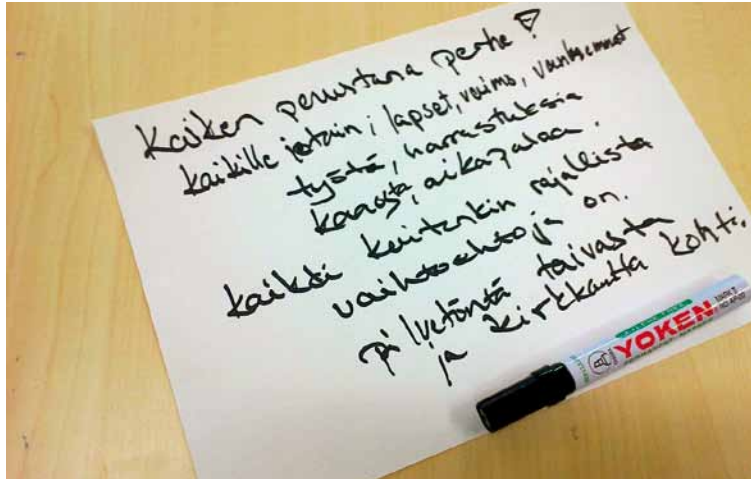 Kaiken perustana perhe!
kaikille jotain; lapset, vaimo, vanhemmat
työtä, harrastuksia
kaaosta, aikapalaa.
kaikki kuitenkin rajallista
vaihtoehtoja on.
pilvetöntä taivasta
ja kirkkautta kohti.
YOKEN